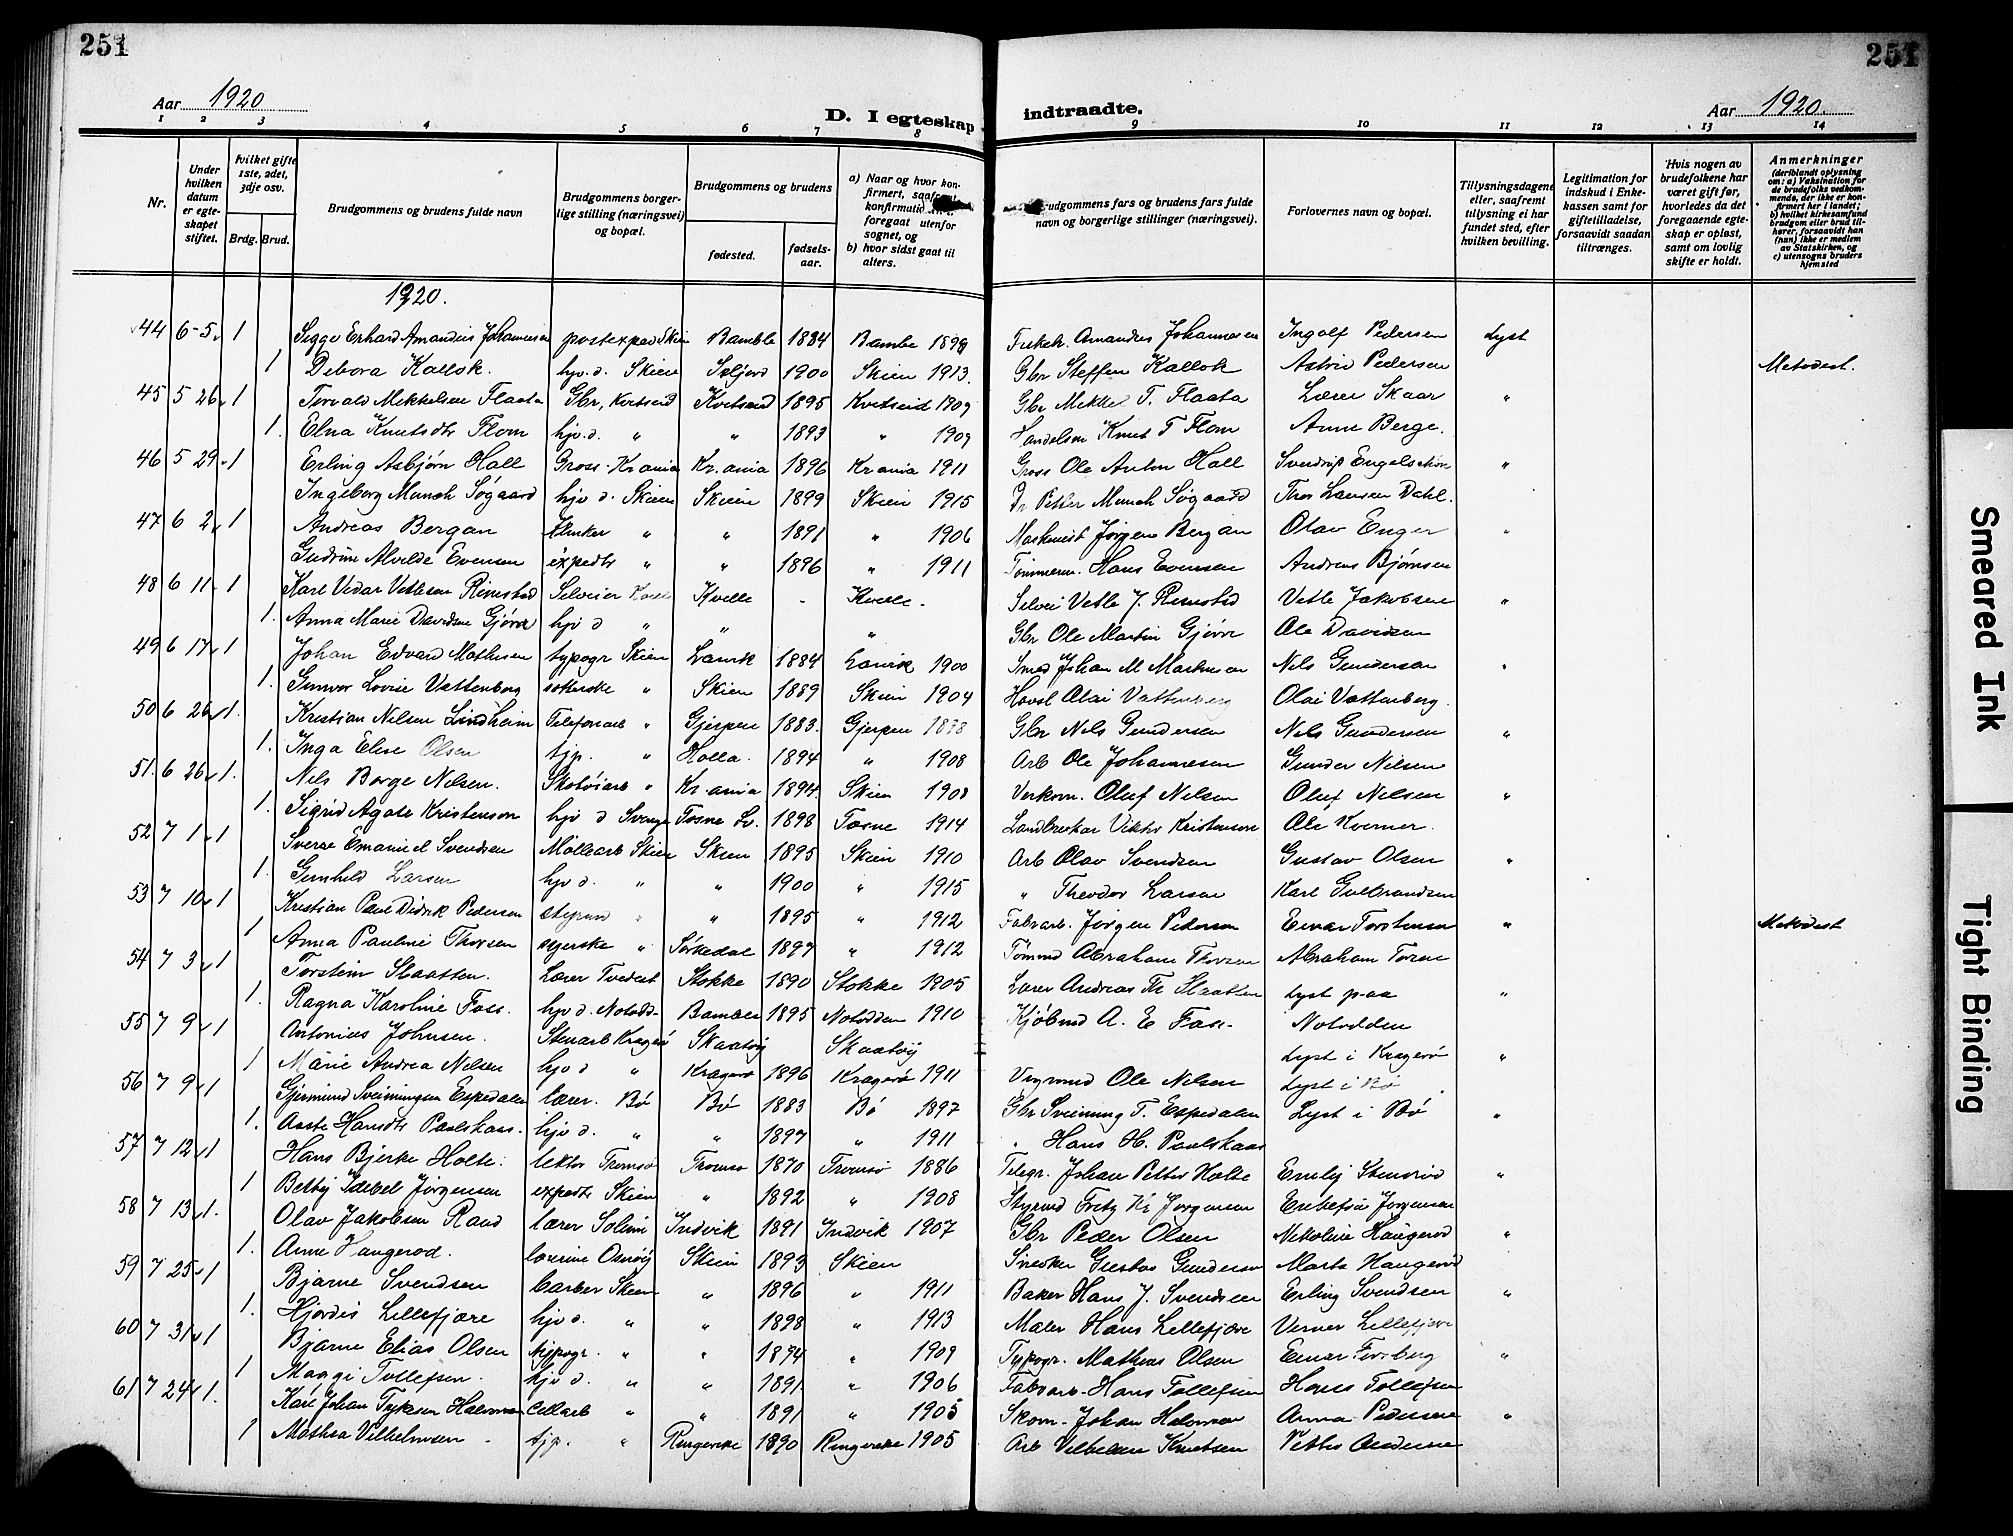 251
251
Aar 1920
D. I egteskap indtraadte.
Aar 1920.
1 2 3 4 5 6 7 8 9 10 11 12 13 14
Nr.
Under hvilken datum er egteskapet stiftet.
hvilket gifte 1ste, 2det, 3dje osv.
Brdg. Brud.
Brudgommens og brudens fulde navn
Brudgommens borgerlige stilling (næringsvei) og bopæl.
Brudgommens og brudens
fødested.
fødselsaar.
a) Naar og hvor konfirmert, saafremt konfirmation foregaat utenfor sognet, og
b) hvor sidst gaat til alters.
Brudgommens fars og brudens fars fulde navn og borgerlige stillinger (næringsvei).
Forlovernes navn og bopæl.
Tillysningsdagene eller, saafremt tillysning ei har fundet sted, efter hvilken bevilling.
Legitimation for indskud i Enkekassen samt for giftetilladelse, forsaavidt saadan tiltrænges.
Hvis nogen av brudefolkene har været gift før, hvorledes da det foregaaende egteskap er opløst, samt om lovlig skifte er holdt.
Anmerkninger (deriblandt oplysning om: a) Vaksination for de brudefolks vedkommende, der ikke er konfirmert her i landet; b) hvilket kirkesamfund brudgom eller brud tilhører, forsaavidt han (hun) ikke er medlem av Statskirken, og c) utensogns bruders hjemsted
1920.
44 6-5 1 Sigge Erhard Amandus Johannesen postexped Skien Bamble 1884 Bambe 1899 Amandus Johannesen Ingolf Pedersen Lyst
1 Debora Kallok. hjv. d. Skien Seljord 1900 Skien 1913. Gbr Steffen Kallok Astrid Pedersen Metodist.
45 5 26 1 Torvald Mikkelsen Flaata Gbr, Kvitseid Kvitseid 1895 Kvitseid 1909 Gbr Mikkel T. Flaata Lærer Skaar "
1. Elna Knutsdtr Flom hjv. d. " " 1893 " 1909 Handelsm Knut T Flom Anne Berge.
46 5 29 1 Erling Asbjørn Hall Gross. Kr.ania Kr.ania 1896 Kr ania 1911 Gross Ole Anton Hall Svendrup "
Ingeborg Munch Søgaard hjv d. Skien Skien 1899 Skien 1915 Dr Petter Munch Søgaard Thor Larsen Dahl.
47 6 2 1 Andreas Bergan " " 1891 " 1906 Maskinist Jørgen Bergan Olav Enger "
Gudrun Alvilde Evensen expedtr " " 1896 " 1911 Tømmerm. Hans Evensen Andreas Bjørnsen
48 6 11 1 Karl Vidar Vetlesen Rimstad Selveier Kvelle Kvelle - Kvelle - Selvei Vetle J. Rimstad Vetle Jakobsen "
1. Anna Marie Davidsen Gjøvre hjv d " " " Gbr Ole Martin Gjøvre Ole Davidsen
49 6 17 1 Johan Edvard Mathisen typogr Skien Larvik 1884 Larvik 1900 Smed Johan M Nils Gundersen "
1. Gunvor Lovise Vattenberg " Skien 1889 Skien 1904 Olai Vattenberg Olai Vattenberg.
50 6 26 1. Kristian Nilsen Lindheim Telefonarb " Gjerpen 1883. Gjerpen 1898 Gbr Nils Gundersen Nils Gundersen "
1. Inga Elise Olsen tjp. " Holla. 1894 " 1908 Arb Ole Johannesen Gunder Nilsen
51. 6 26 1. Nils Borge Nilsen. Skotøiarb " Kr.ania 1894. Skien 1908 Verksm. Oluf Nilsen Oluf Nilsen "
1. Sigrid Agate Kristenson hjv d Sverige Tosne Sv. 1898 Tosne 1914 Landbrukar Viktor Kristenson Ole Kverner.
52 7 1 1 Sverre Emanuel Svendsen Møllearb Skien Skien 1895 Skien 1910 Arb Olav Svendsen Gustav Olsen "
1. Gunhild Larsen hjv d. " " 1900 " 1915 " Theodor Larsen Karl Gulbrandsen
53 7 10 1 Kristian Paul Didrik Pedersen styrm " " 1895 " 1912 Fabrarb. Jørgen Pedersen Einar Torstensen " Metodist
1 Anna Pauline Thorsen syerske " Sørkedal 1897 " 1912 Tømmd Abraham Thorsen Abraham Torsen
54 7 3 1 Torstein Slaatten. Lærer Tvedest Stokke 1890 Stokke 1905 Lærer Andreas Th Slaatten Lyst paa "
1. Ragna Karoline Foss. hjv d. Notodd- Bamble 1895 Notodden 1910 Kjøbmd A. E Foss- Notodden
55 7 9 1 Antonius Johnsen. Stenarb Kragerø Skaatøy Skaatøy Lyst i Kragerø "
1 Marie Andrea Nilsen hjv d " Kragerø 1896 Kragerø 1911 Vognmd Ole Nilsen Lyst i Bø
56 7 9 1 Gjermund Sveinungsen Espedalen lærer. Bø Bø 1883 Bø 1897 Gbr Sveinung T. Espedalen Lyst i Bø "
1. Aaste Hansdtr Paulskaas. hjv d. " " 1897 " 1911 " Hans H. Paulskaas
57 7 12 1 Hans Bjerke Holte. lektor Tromsø Tromsø 1870 Tromsø 1886 Telegr. Johan Petter Holte Emely Stensrød "
1 Betty Idebel Jørgensen expedtr Skien " 1892 " 1908 Styrmd Fritz Kr Jørgensen Jørgensen
58 7 13 1. Olav Jakobsen Rand lærer Solum Indvik 1891 Indvik 1907 Gbr Peder Olsen Nikoline Haugerød "
1. Anne Haugerød. lærerine Skien 1893 Skien Snedker Gustav Gundersen Marta Haugerød
59 7 25 1 Bjarne Svendsen barber Skien " 1896 " 1911 Baker Hans J. Svendsen Erling Svendsen "
1. Hjørdis Lillefjære hjv d. " " 1898 " 1913 Maler Hans Lillefjære Verner Lillefjære
60 7 31 1 Bjarne Elias Olsen typogr. " " 1894 " 1909 Typogr. Mathias Olsen Einar Forsberg "
1 Maggi Tollefsen. hjv d. " " 1891. " 1906 Fabrarb. Hans Tollefsen Hans Tollefsen
61 7 24 1. Karl Johan Cellarb " " 1891 " 1905 Skom. Johan Anna Pedersen "
1 Mathea Vilhelmsen - tjp. " Ringerike 1890 Ringerike 1905 Arb Vilhelm Knutsen Petter Andersen
Smeared Ink
Tight Binding